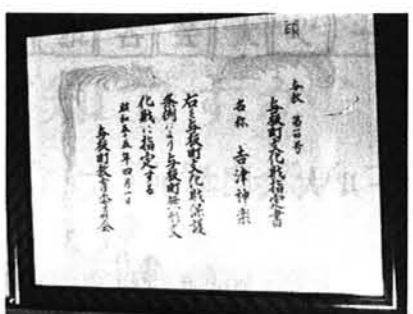 与教 第一号
与板町文化財指定書
名称 吉津神楽
右を与板町文化財保護
条例により与板町無形文
化財に指定する
昭和五十五年四月一日
与板町教育委員会